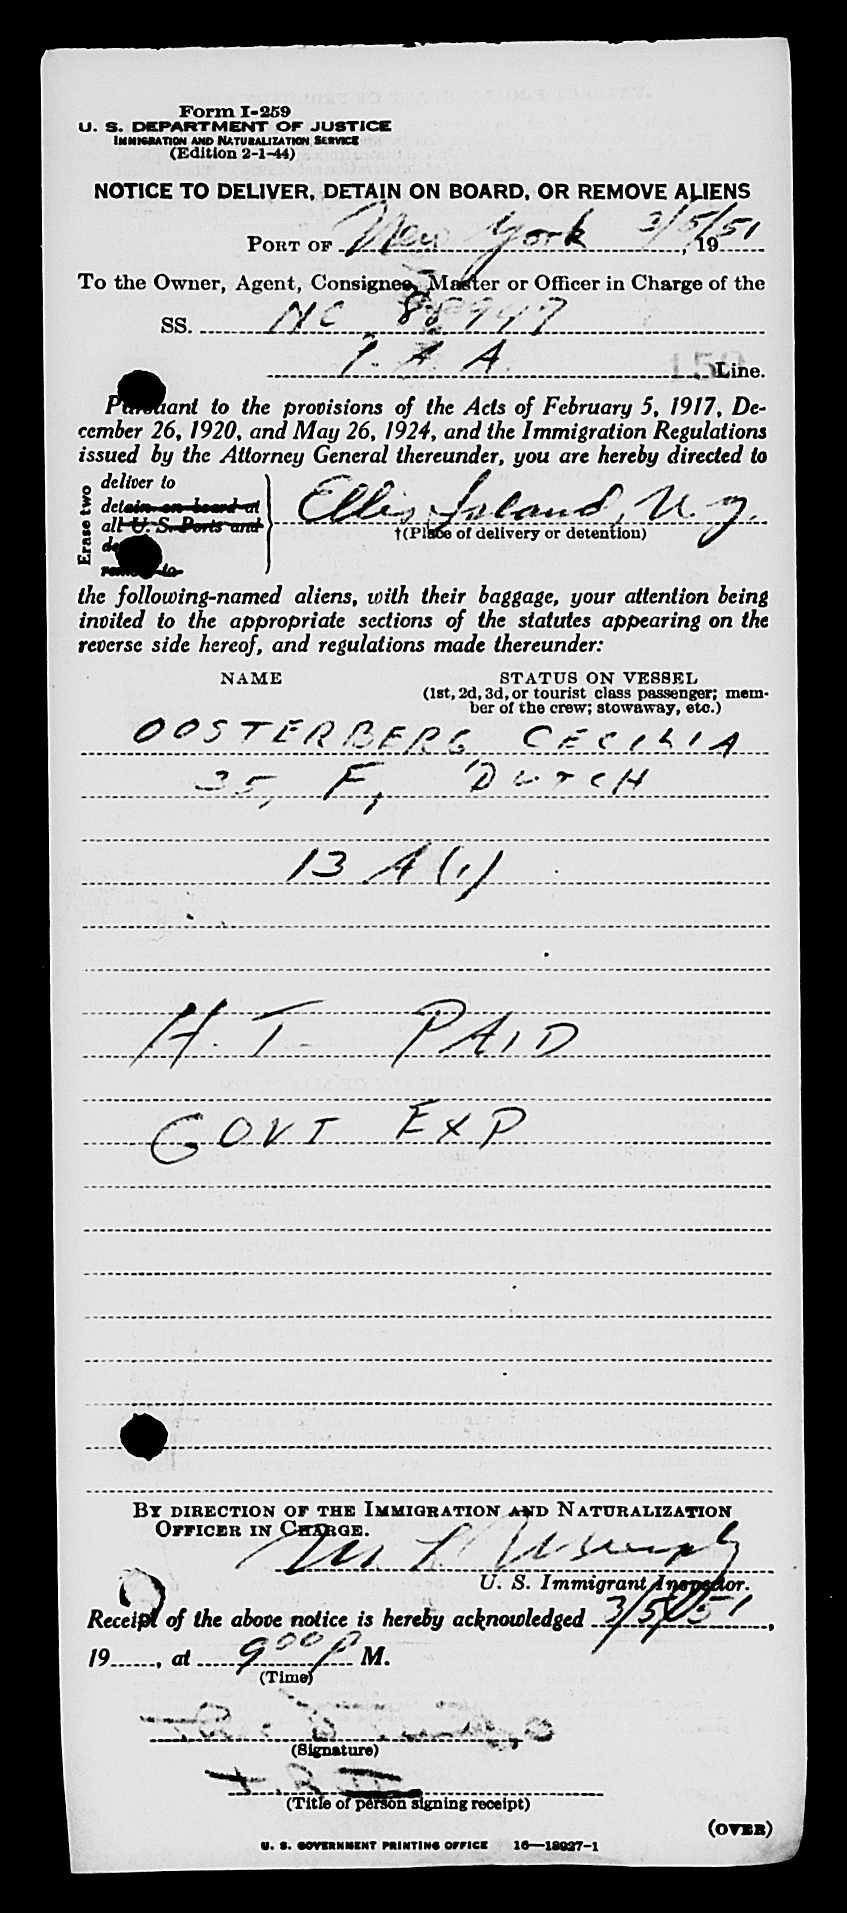 Form I-259
U. S. DEPARTMENT OF JUSTICE
IMMIGRATION AND NATURALIZATION SERVICE
(Edition 2-1-44)
NOTICE TO DELIVER, DETAIN ON BOARD, OR REMOVE ALIENS
PORT OF New York 3/5/51, 19
To the Owner, Agent, Consignee, Master or Officer in Charge of the
SS. NC 88947
A. A. Line.
Pursuant to the provisions of the Acts of February 5, 1917, De-
cember 26, 1920, and May 26, 1924, and the Immigration Regulations
issued by the Attorney General thereunder, you are hereby directed to
Erase two
deliver to
detain on board at
all U. S. Ports and
remove to
Ellis Island, N. Y.
†(Place of delivery or detention)
the following-named aliens, with their baggage, your attention being
invited to the appropriate sections of the statutes appearing on the
reverse side hereof, and regulations made thereunder:
NAME STATUS ON VESSEL
(1st, 2d, 3d, or tourist class passenger; mem-
ber of the crew; stowaway, etc.)
OOSTERBERG CECILIA
35, F, DUTCH
13 A (1)
H. T. PAID
GOVT EXP
BY DIRECTION OF THE IMMIGRATION AND NATURALIZATION
OFFICER IN CHARGE.
U. S. Immigrant Inspector.
Receipt of the above notice is hereby acknowledged 3/5/51,
19, at 9 00 P M.
(Time)
(Signature)
(Title of person signing receipt)
(OVER)
U. S. GOVERNMENT PRINTING OFFICE 16—18927-1